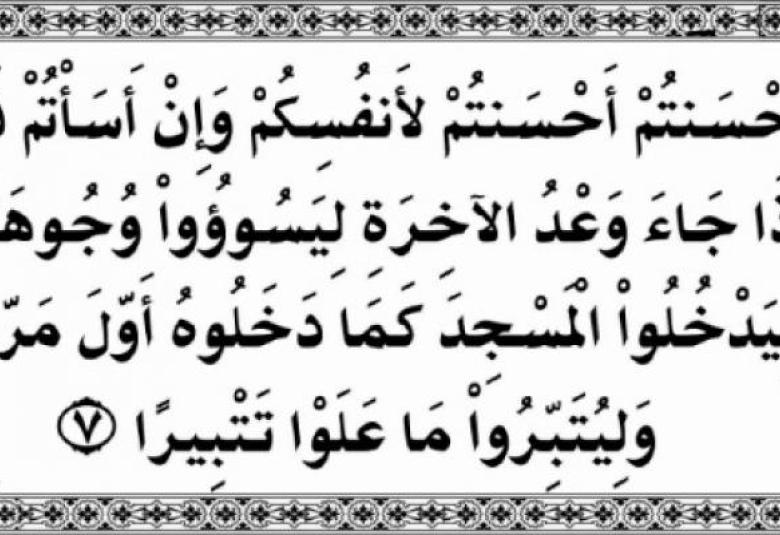 حْسَنتُمْ أَحْسَنتُمْ لأَنفُسِكُمْ وَإِنْ أَسَأْتُمْ
ذَا جَاءَ وَعْدُ الآخِرَةِ لِيَسُوؤُواْ وُجُوهَ
يَدْخُلُواْ الْمَسْجِدَ كَمَا دَخَلُوهُ أَوَّلَ مَرّ
وَلِيُتَبِّرُواْ مَا عَلَوْا تَتْبِيرًا ٧